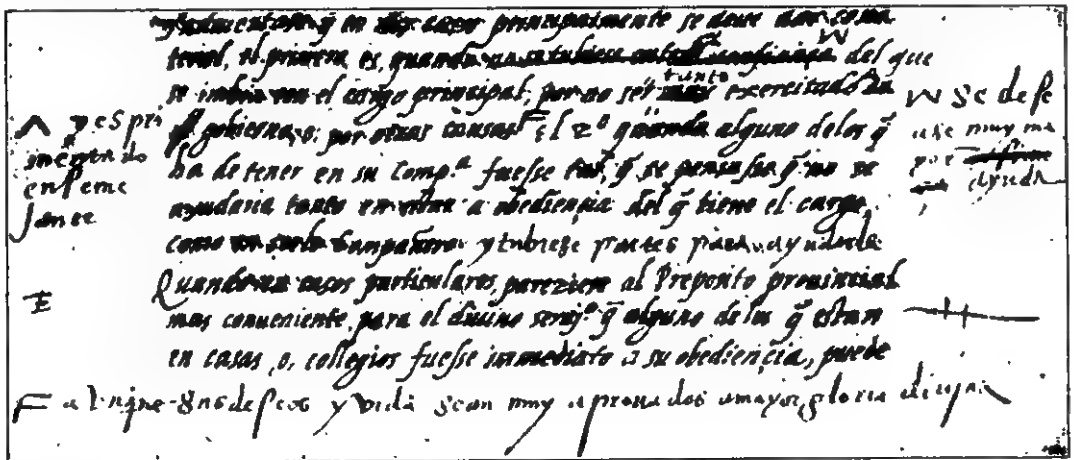 q̃ en casos principalmente se deue dar cola
teral, el primero es, quando no se tubiese del que
se imbia con el cargo principal, por no ser tanto exercitado en
gobierno, o, por otras causas F El 2º quando alguno de los q̃
ha de tener en su comp.ª fuesse tal, q̃ se pensasse q̃ no se
ayudaria tanto en estar a obediençia del q̃ tiene el cargo,
como compañero y tubiese partes para ayudarle
Quando en casos particulares, pareziere al Preposito prouincial
mas conueniente, para el diuino serui.º q̃ alguno de los q̃ estan
en casas, o, collegios fuesse immediato a su obediençia, puede
y espri
mentado
en seme
jante
E
Se dese
ase muy ma
yor
ayuda
F aunque sus deseos y vida sean muy aprouados a mayor gloria diuina